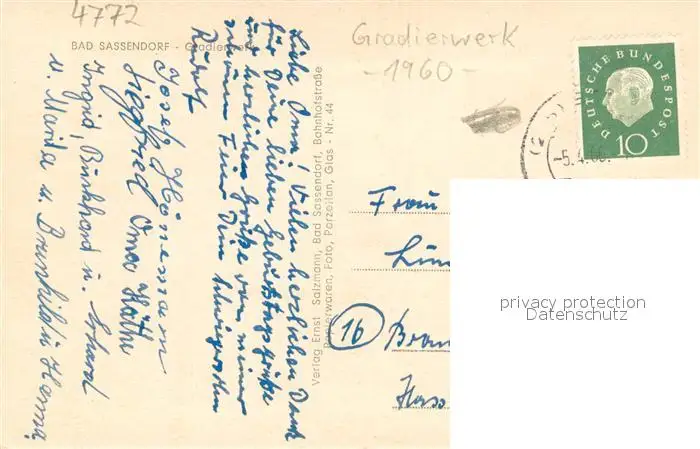 4772
BAD SASSENDORF - Gradierwerk
Gradierwerk
-1960-
DEUTSCHE BUNDESPOST
10
-5.4.60.
Liebe Oma! Vielen herzlichen Dank
für Deine lieben Geburtstagsgrüße
und herzlichen Grüße von meiner
Dein Schwiegersohn
Rudolf
Josef Hönemann
Siegfried Oma Käthe
Ingrid, Burkhard u. Erhard
u. Marita u. Brunhilde
Verlag Ernst Salzmann, Bad Sassendorf, Bahnhofstraße
Papierwaren, Foto, Porzellan, Glas - Nr. 44
Frau
Lün
16
Bram
Hass
privacy protection
Datenschutz